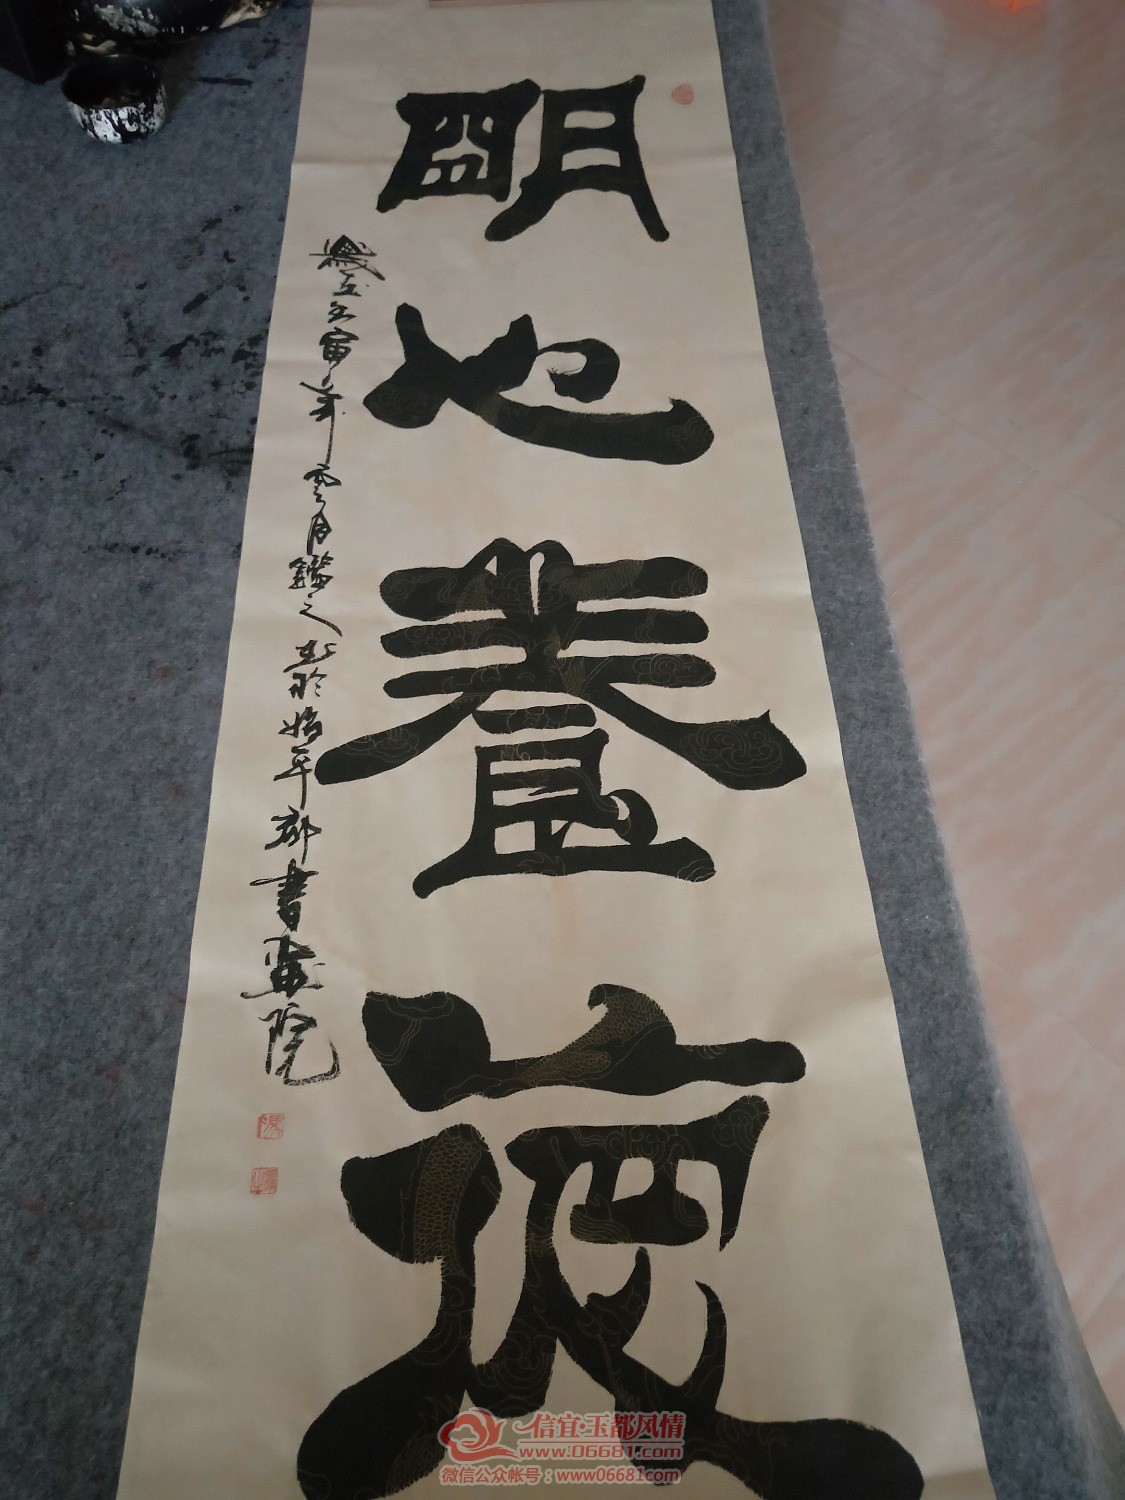 朙也養
歲在壬寅年雲月鑑之书於始平郡書畫院
信宜·玉都风情
www.06681.com
微信公众帐号：www06681com